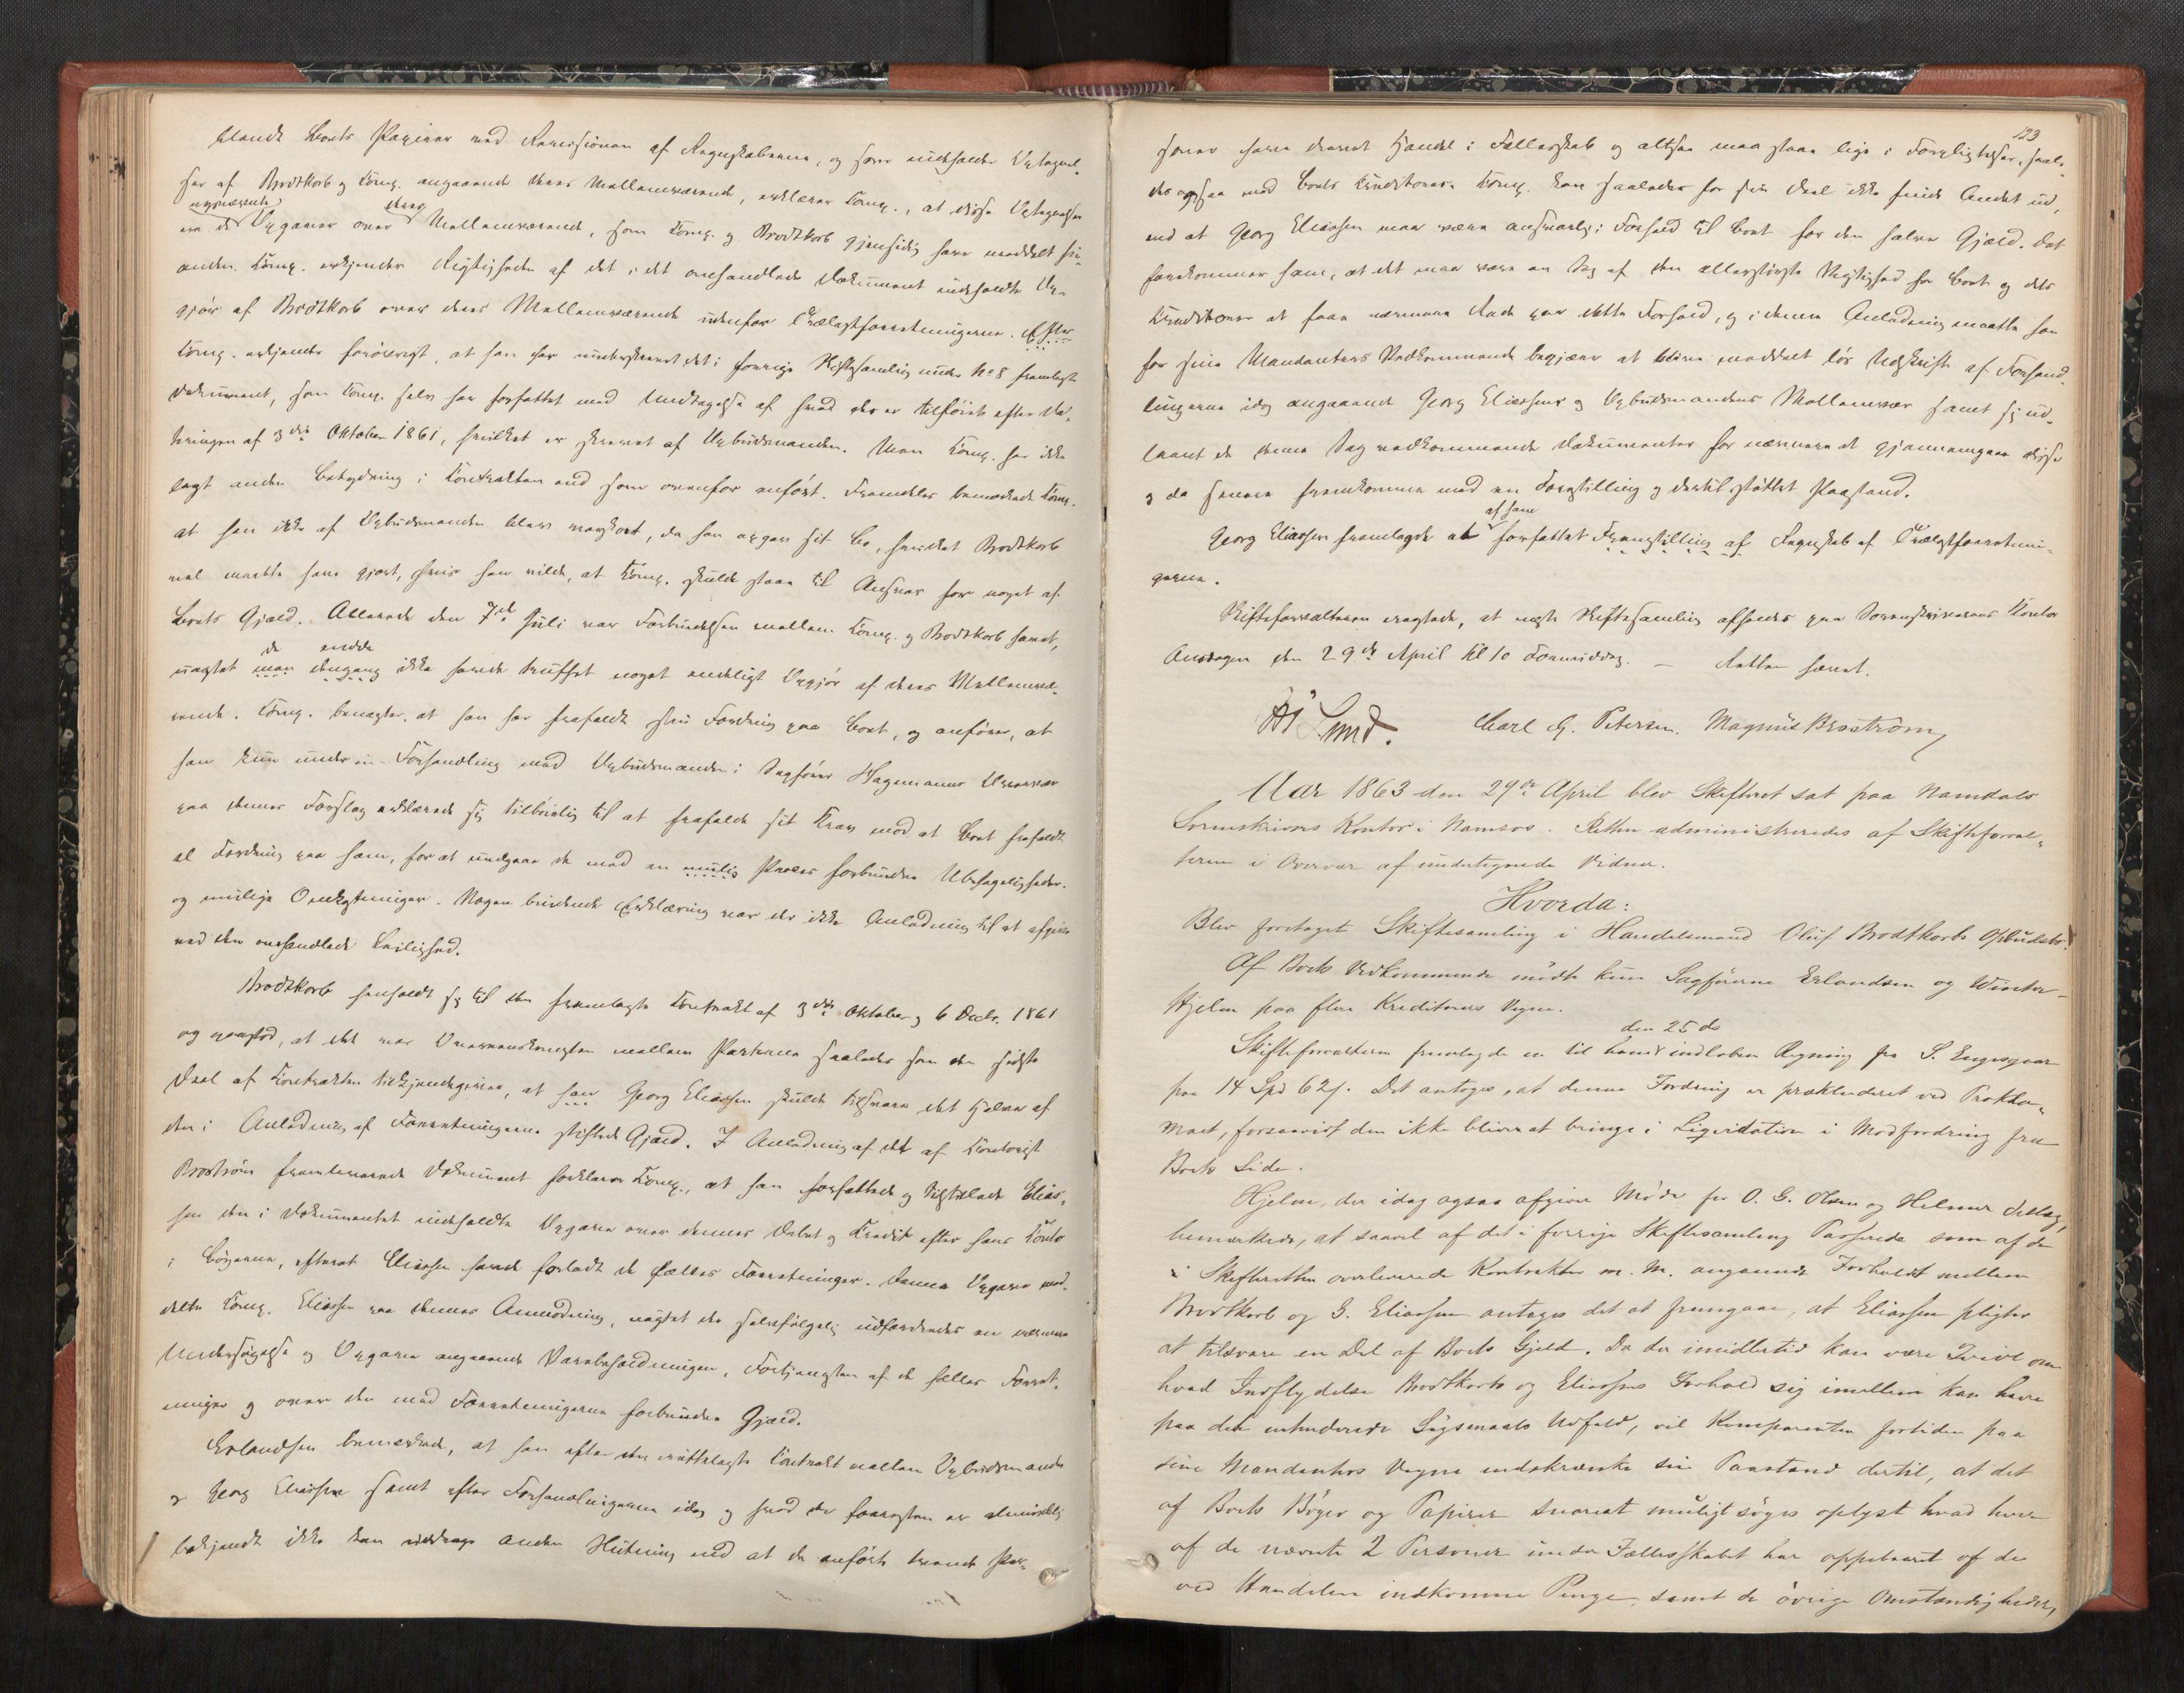 blandt Boets Papirer ved Revisionen af Regnskaberne, og som indeholder Optegnel-
ser af Brodtkorb og Komp. angaaende deres Mellemværende, erklærer Komp., at disse Optegnelser
ere de Opgaver over Mellemværende, som Komp. og Brodtkorb gjensidig have meddelt hin-
anden. Komp. erkjender Rigtigheden af det i det omhandlede Dokument indholdte Op-
gjør af Brodtkorb over deres Mellemværende udenfor Forretningerne. Efter
Komp. erkjender forøvrigt, at han har underskrevet det i forrige Skiftesamling under No 8 fremlagte
Dokument, som Komp. selv har forfattet med Undtagelse af hvad der er tilføiet efter Da-
teringen af 3die Oktober 1861, hvilket er skrevet af Opbudsmanden. Men Komp. har ikke
lagt anden Betydning i Kontrakten end som ovenfor anført. Fremdeles bemærkede Komp.
at han ikke af Opbudsmanden blev varskoet, da han opgav sit Bo, hvilket Brodtkorb
vel maatte have gjort, hvis han vilde, at Komp. skulde staae til Ansvar for noget af
Boets Gjæld. Allerede den 7de Juli var Forbindelsen mellem Komp. og Brodtkorb hævet,
de endda
uagtet man dengang ikke havde truffet noget endeligt Opgjør af deres Mellemvæ-
rende. Komp. benegter, at han har frafaldt sin Fordring paa Boet, og anfører, at
han kun under en Forhandling med Opbudsmanden i Sagfører Hagemanns Overvær
paa dennes Forslag erklærede sig tilbøielig til at frafalde sit Krav mod at Boet frafaldt
al Fordring paa ham, for at undgaae de med en mulig Proces forbundne Ubehageligheder
og mulige Omkostninger. Nogen bindende Erklæring var der ikke Anledning til at afgive
ved den omhandlede Leilighed.
Brodtkorb henholdt sig til den fremlagte Kontrakt af 3die Oktober og 6 Decbr. 1861
og paastod, at det var Overenskomsten mellem Parterne saaledes som den sidste
Deel af Kontrakten tilkjendegiver, at han Georg Eliassen skulde tilsvare det halve af
den i Anledning af Forretningerne stiftede Gjæld. I Anledning af det af Kontorist
Broström fremleverede Dokument forklarer Komp., at han forfattede og tilstillede Elias-
sen den i Dokumentet indholdte Opgave over dennes Debet og Kredit efter hans Konto
i Bøgerne, efterat Eliassen havde forladt de fælles Forretninger. Denne Opgave med-
delte Komp. Eliassen paa dennes Anmodning, uagtet der selvfølgelig udfordredes en nærmere
Undersøgelse og Opgave angaaende Varebeholdningen, Fortjenesten af de fælles Forret-
ninger og over den med Forretningerne forbundne Gjæld.
Erlandsen bemærkede, at han efter den fremlagte Kontrakt mellem Opbudsmanden
og Georg Eliassen samt efter Forhandlingerne idag og hvad der forresten er almindelig
bekjendt ikke kan uddrage anden Slutning end at de anførte tvende Per-
123
soner have drevet Handel i Fællesskab og altsaa maa staae lige i Forpligtelser, saale-
des ogsaa mod Boets Kreditorer. Komp. kan saaledes for sin Deel ikke finde Andet ud,
end at Georg Eliassen maa være ansvarlig i Forhold til Boet for den halve Gjæld. Det
forekommer ham, at det maa være en Sag af den allerstørste Vigtighed for Boet og dets
Kreditorer at faae nærmere Rede paa dette Forhold, og i denne Anledning maatte han
for sine Mandanters Vedkommende begjære at blive meddeelt løs Udskrift af Forhand-
lingerne idag angaaende Georg Eliassens og Opbudsmandens Mellemvær samt sig ud-
laant de denne Sag vedkommende Dokumenter for nærmere at gjennemgaae disse
og da senere fremkomme med en Fremstilling og dertil støttet Paastand.
af ham
Georg Eliassen fremlagde et forfattet Fremstilling af Regnskab af Forretnin-
gerne.
Skifteforvalteren eragtede, at næste Skiftesamling afholdes paa Sorenskriverens Kontor
Onsdagen den 29de April Kl 10 Formiddag. — Retten hævet.
Lund. Carl G. Petersen. Magnus Broström
Aar 1863 den 29de April blev Skifteret sat paa Namdals
Sorenskrivers Kontor i Namsos. Retten administreredes af Skifteforval-
teren i Overvær af undertegnede Vidner.
Hvorda:
Blev foretaget Skiftesamling i Handelsmand Oluf Brodtkorbs Opbudsbo.
Af Boets Vedkommende mødte kun Sagførerne Erlandsen og Winter-
Hjelm paa flere Kreditorers Vegne.
den 25 ds
Skifteforvalteren fremlagde en til ham indløben Regning fra S. Engesgaar
paa 14 Spd 62 s. Det antoges, at denne Fordring er prækluderet ved Prokla-
maet, forsaavidt den ikke bliver at bringe i Liqvidation i Modfordring fra
Boets Side.
Hjelm, der idag ogsaa afgiver Møde for O. G. Olsen og Helmer
bemærkede, at saavel af det i forrige Skiftesamling Passerede som af de
i Skifteretten overleverede Kontrakter m. M. angaaende Forholdet mellem
Brodtkorb og G. Eliassen antages det at fremgaae, at Eliassen pligter
at tilsvare en Del af Boets Gjeld. Da der imidlertid kan være Tvivl om
hvad Indflydelse Brodtkorbs og Eliassens Forhold sig imellem kan have
paa det Søgsmaals Udfald, vil Komparenten fortiden paa
sine Mandanters Vegne indskrænke sin Paastand dertil, at det
af Boets Bøger og Papirer snarest muligt søges oplyst hvad hver
af de nævnte 2 Personer under Fællesskabet har oppebaaret af de
ved Handelen indkomne Penge, samt de øvrige Omstændigheder,